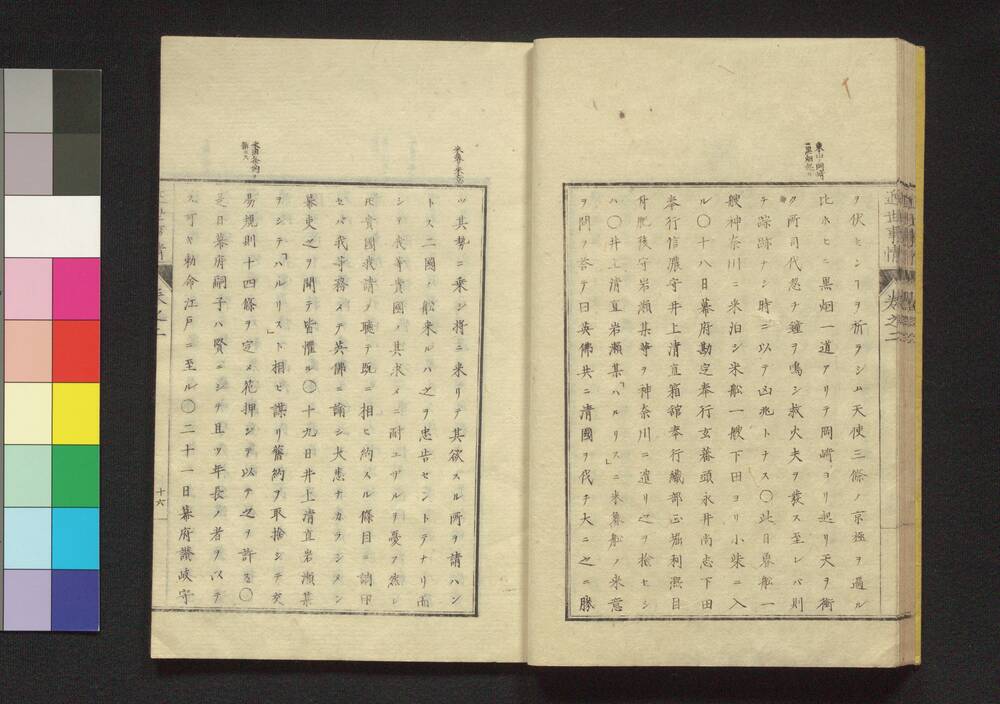 近世事情 巻之二
東山岡崎
黒烟起ル
ヲ伏ヒンヿヲ祈ヲシム天使三條ノ京極ヲ過ル
比ホヒニ黒烟一道アリテ岡崎ヨリ起リ天ヲ衝
ク所司代忽チ鐘ヲ鳴シ救火夫ヲ發ス至レバ則
チ踪跡ナシ時ニ以テ凶兆トナス〇此日魯船一
艘神奈川ニ来泊シ米船一艘下田ヨリ小柴ニ入
ル〇十八日幕府勘定奉行玄蕃頭永井尚志下田
奉行信濃守井上清直箱舘奉行織部正堀利熙目
付肥後守岩瀬某等ヲ神奈川ニ遣リ之ヲ検セシ
ハ〇井上清直岩瀬某「ハルリスニ米幕船ノ来意
ヲ問フ答テ曰英佛共ニ清國ヲ伐チ大ニ之ニ勝
ツ其勢ニ乗シ将ニ来リテ其欲スル所ヲ請ハン
トス二國ノ船来ルハ之ヲ忠告セントテナリ而
シテ我等貴國ノ其求メニ耐エザルヲ憂フ然レ
𪜈貴國我請ヲ聴テ既ニ相ヒ約スル條目ニ調印
セバ我等務メテ英佛ニ諭シ大患ナカラシメン
幕吏之ヲ聞テ皆懼ル〇十九日井上清直岩瀬某
ヲシテ「ハルリス」ト相ヒ謀リ舊約ヲ取捨シテ交
易規則十四條ヲ定メ花押シテ以テ之ヲ許ス〇
是日幕府嗣子ハ賢ニシテ且ツ年長ノ者ヲ以テ
ス可キ勅命江戸ニ至ル〇二十一日幕府讃岐守
十六